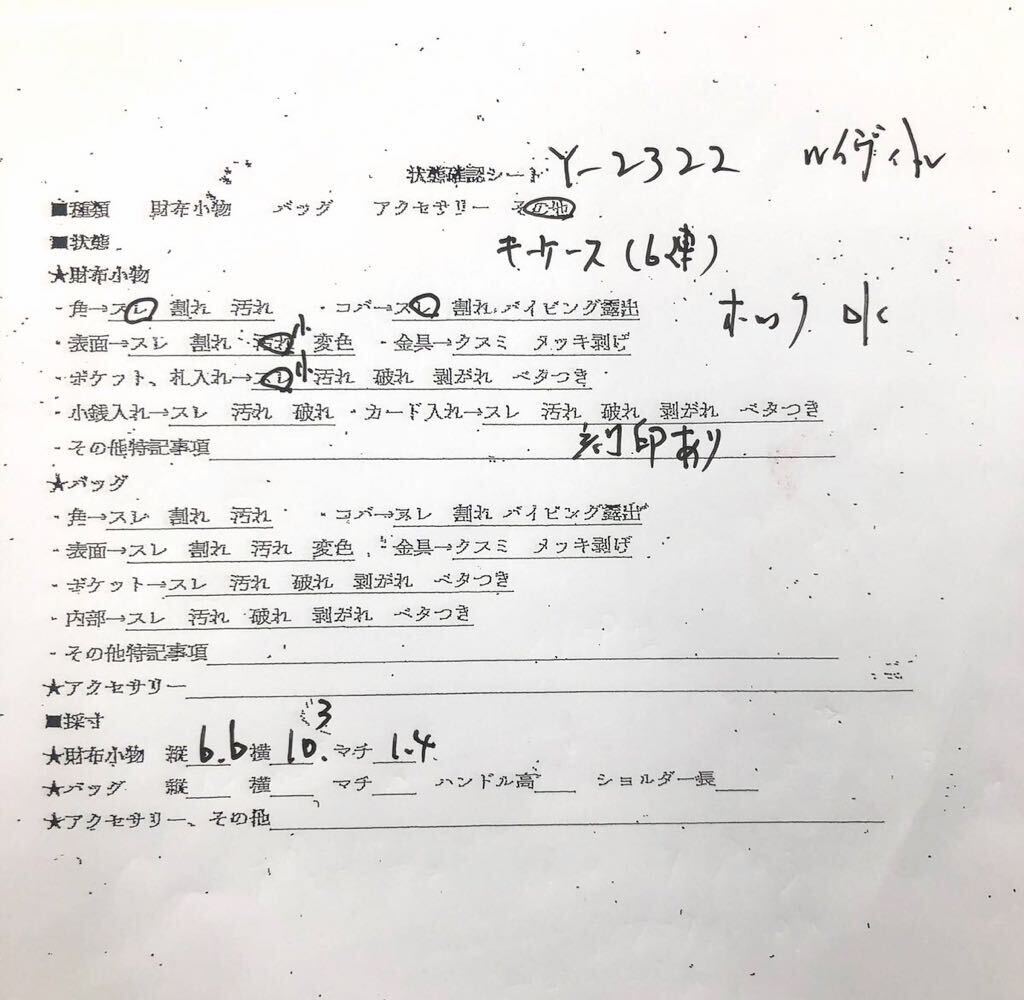 状態確認シート Y-2322 ルイヴィトン
■種類 財布小物 バッグ アクセサリー その他
■状態 キーケース(6連)
★財布小物
・角→スレ 割れ 汚れ ・コバ→スレ 割れ パイピング露出 ホック OK
・表面→スレ 割れ 汚れ小 変色 ・金具→クスミ メッキ剥げ
・ポケット、札入れ→スレ小 汚れ 破れ 剥がれ ベタつき
・小銭入れ→スレ 汚れ 破れ ・カード入れ→スレ 汚れ 破れ 剥がれ ベタつき
・その他特記事項 刻印あり
★バッグ
・角→スレ 割れ 汚れ ・コバ→スレ 割れ パイピング露出
・表面→スレ 割れ 汚れ 変色 ・金具→クスミ メッキ剥げ
・ポケット→スレ 汚れ 破れ 剥がれ ベタつき
・内部→スレ 汚れ 破れ 剥がれ ベタつき
・その他特記事項
★アクセサリー
■採寸
★財布小物 縦 6.6 横 10.3 マチ 1.4
★バッグ 縦 横 マチ ハンドル高 ショルダー長
★アクセサリー、その他